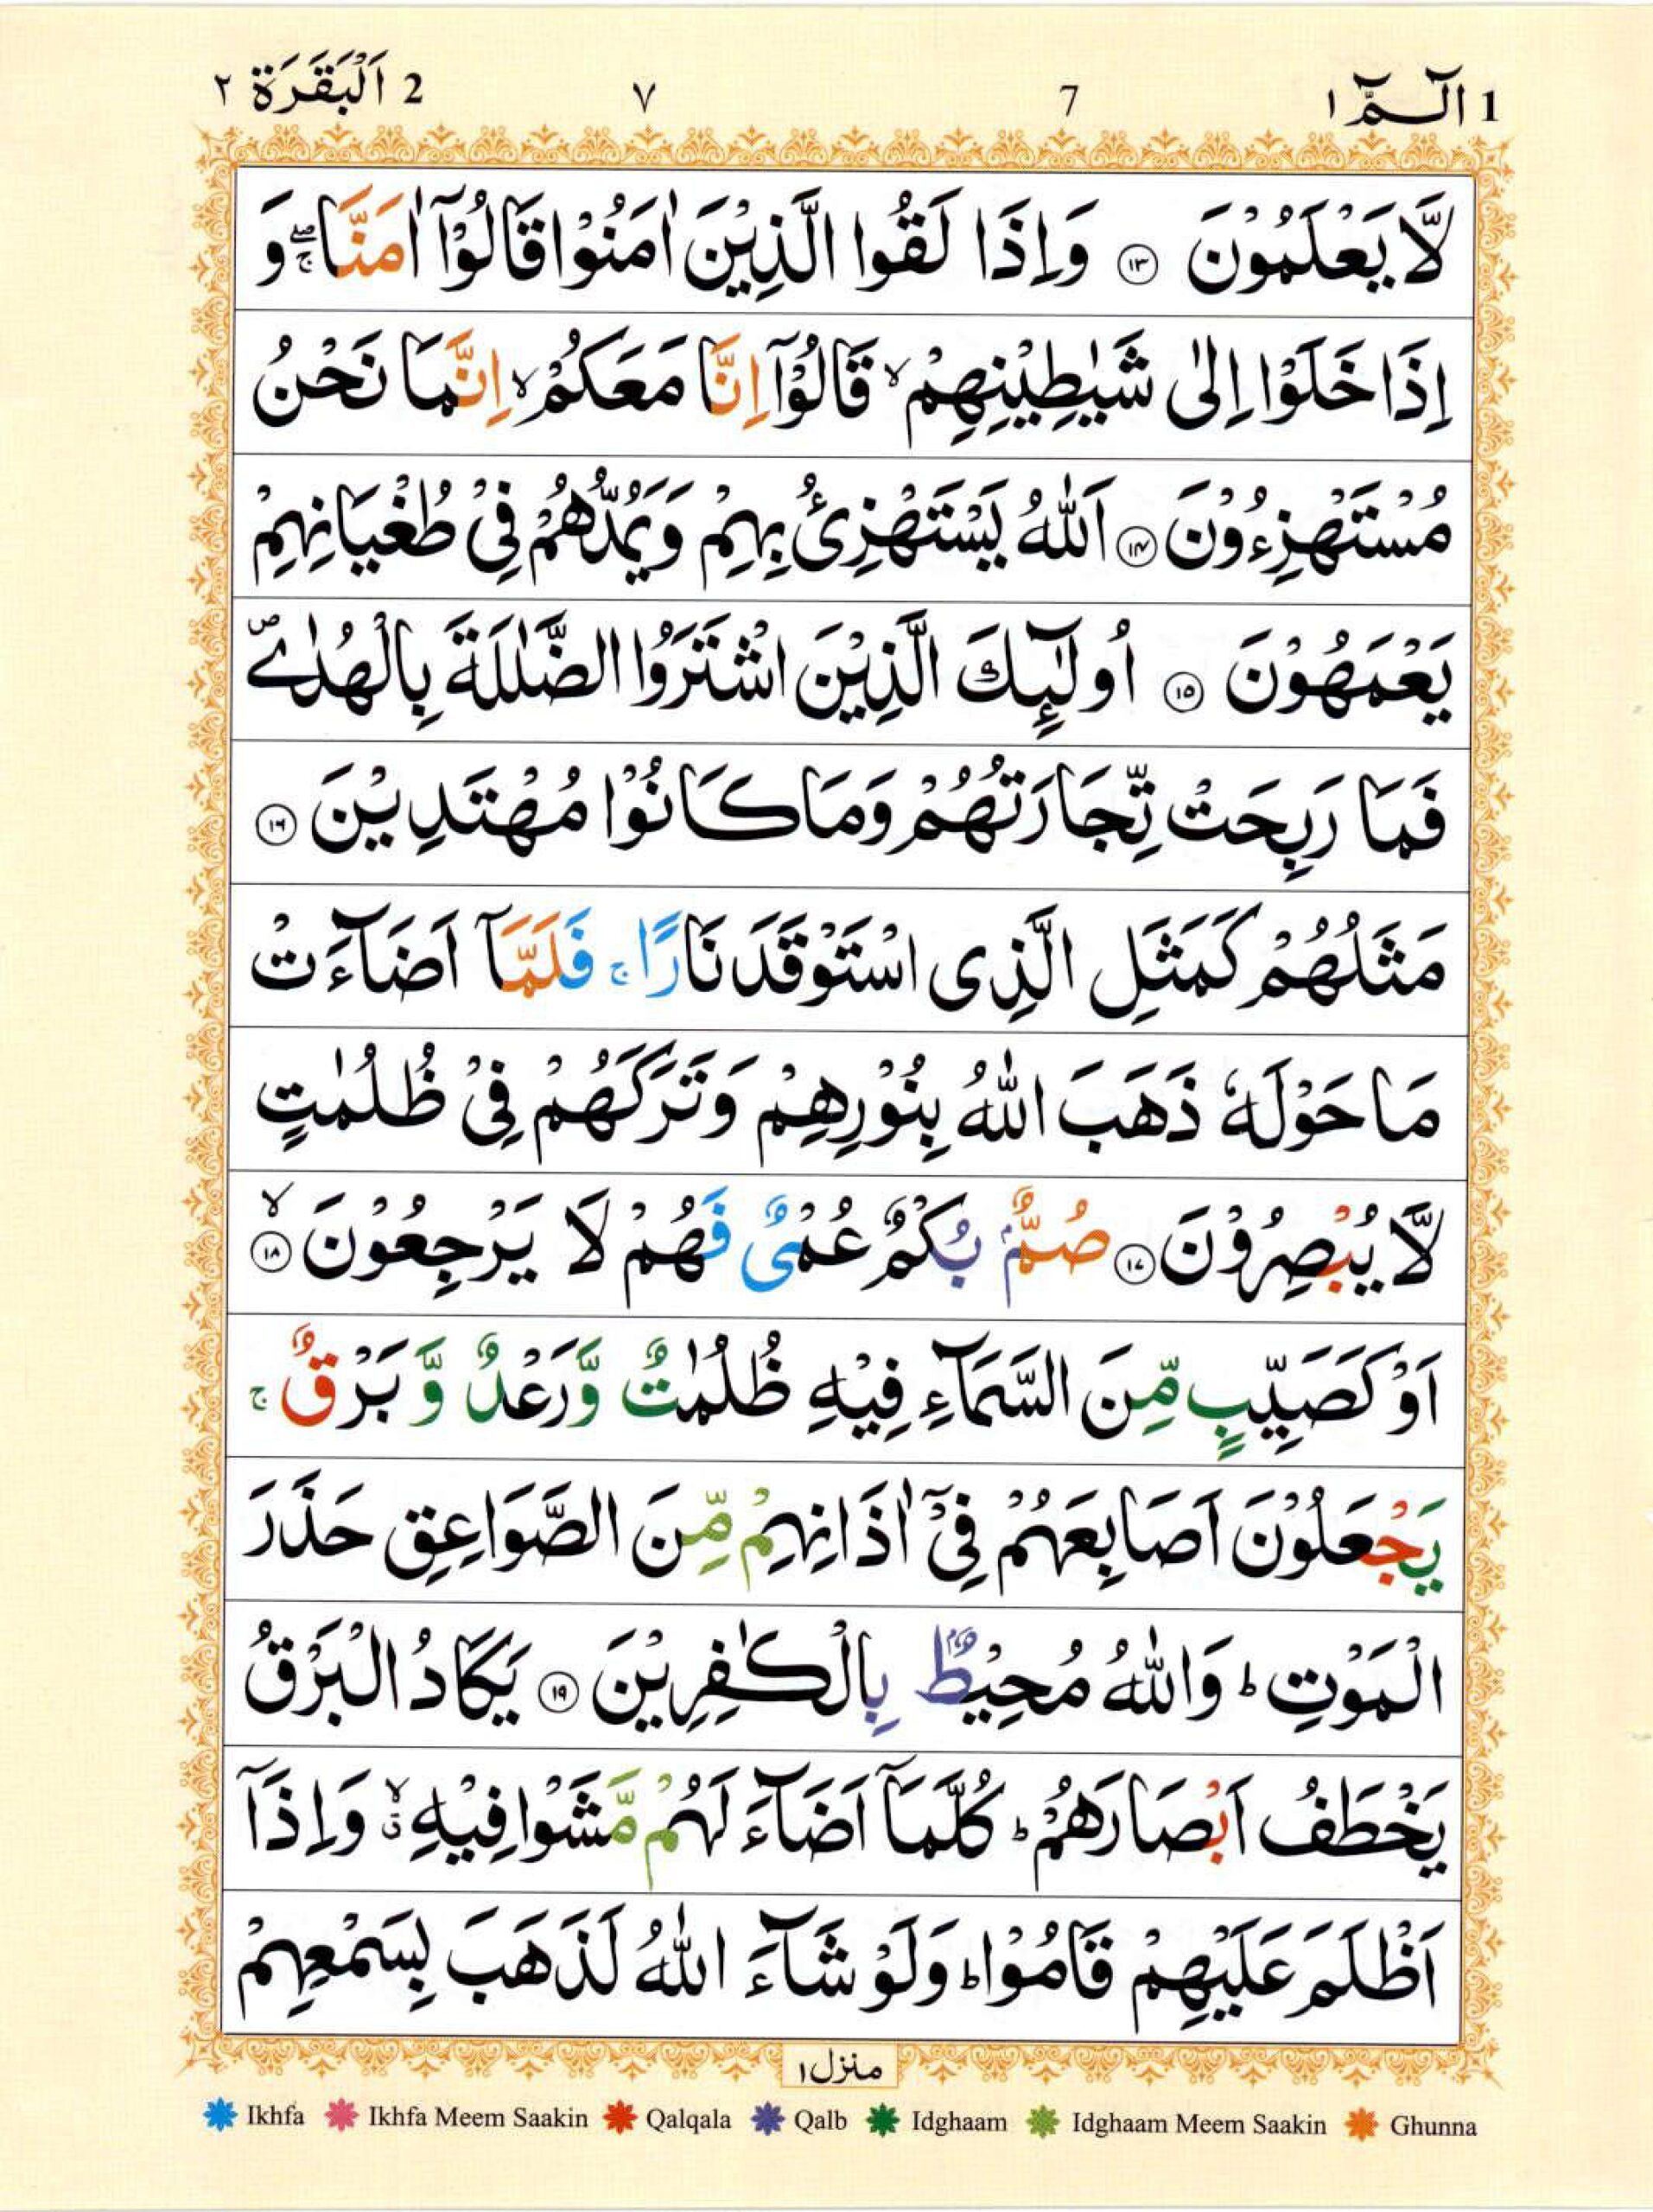 1 الٓـمّٓ ١ 7 ٧ 2 اَلْبَقَرَة ٢
لَّا يَعْلَمُوْنَ ۝١٣ وَاِذَا لَقُوا الَّذِيْنَ اٰمَنُوْا قَالُوْٓا اٰمَنَّا ۖۚ وَ
اِذَا خَلَوْا اِلٰى شَيٰطِيْنِهِمْ ۙ قَالُوْٓا اِنَّا مَعَكُمْ ۙ اِنَّمَا نَحْنُ
مُسْتَهْزِءُوْنَ ۝١٤ اَللّٰهُ يَسْتَهْزِئُ بِهِمْ وَيَمُدُّهُمْ فِيْ طُغْيَانِهِمْ
يَعْمَهُوْنَ ۝١٥ اُولٰٓئِكَ الَّذِيْنَ اشْتَرَوُا الضَّلٰلَةَ بِالْهُدٰى ۪
فَمَا رَبِحَتْ تِّجَارَتُهُمْ وَمَا كَانُوْا مُهْتَدِيْنَ ۝١٦
مَثَلُهُمْ كَمَثَلِ الَّذِى اسْتَوْقَدَ نَارًا ۚ فَلَمَّآ اَضَآءَتْ
مَا حَوْلَهٗ ذَهَبَ اللّٰهُ بِنُوْرِهِمْ وَتَرَكَهُمْ فِيْ ظُلُمٰتٍ
لَّا يُبْصِرُوْنَ ۝١٧ صُمٌّۢ بُكْمٌ عُمْيٌ فَهُمْ لَا يَرْجِعُوْنَ ۝١٨ ۙ
اَوْ كَصَيِّبٍ مِّنَ السَّمَآءِ فِيْهِ ظُلُمٰتٌ وَّرَعْدٌ وَّبَرْقٌ ۚ
يَجْعَلُوْنَ اَصَابِعَهُمْ فِيْٓ اٰذَانِهِمْ مِّنَ الصَّوَاعِقِ حَذَرَ
الْمَوْتِ ؕ وَاللّٰهُ مُحِيْطٌۢ بِالْكٰفِرِيْنَ ۝١٩ يَكَادُ الْبَرْقُ
يَخْطَفُ اَبْصَارَهُمْ ؕ كُلَّمَآ اَضَآءَ لَهُمْ مَّشَوْا فِيْهِ ۙۗ وَاِذَآ
اَظْلَمَ عَلَيْهِمْ قَامُوْا ؕ وَلَوْ شَآءَ اللّٰهُ لَذَهَبَ بِسَمْعِهِمْ
منزل ١
Ikhfa Ikhfa Meem Saakin Qalqala Qalb Idghaam Idghaam Meem Saakin Ghunna